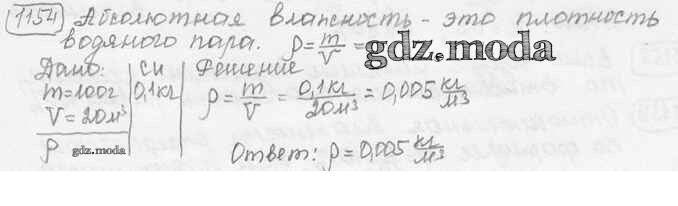 1154) Абсолютная влажность - это плотность
водяного пара. ρ = m/V =
gdz.moda
Дано: СИ Решение
m=100г 0,1кг ρ = m/V = 0,1кг/20м³ = 0,005 кг/м³
V=20м³
ρ gdz.moda
Ответ: ρ=0,005 кг/м³